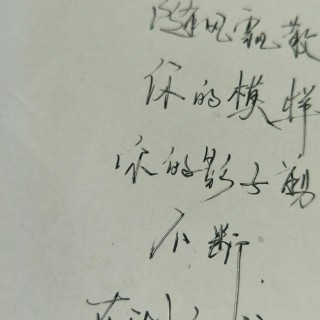 随风飘散
你的模样
你的影子剪
不断